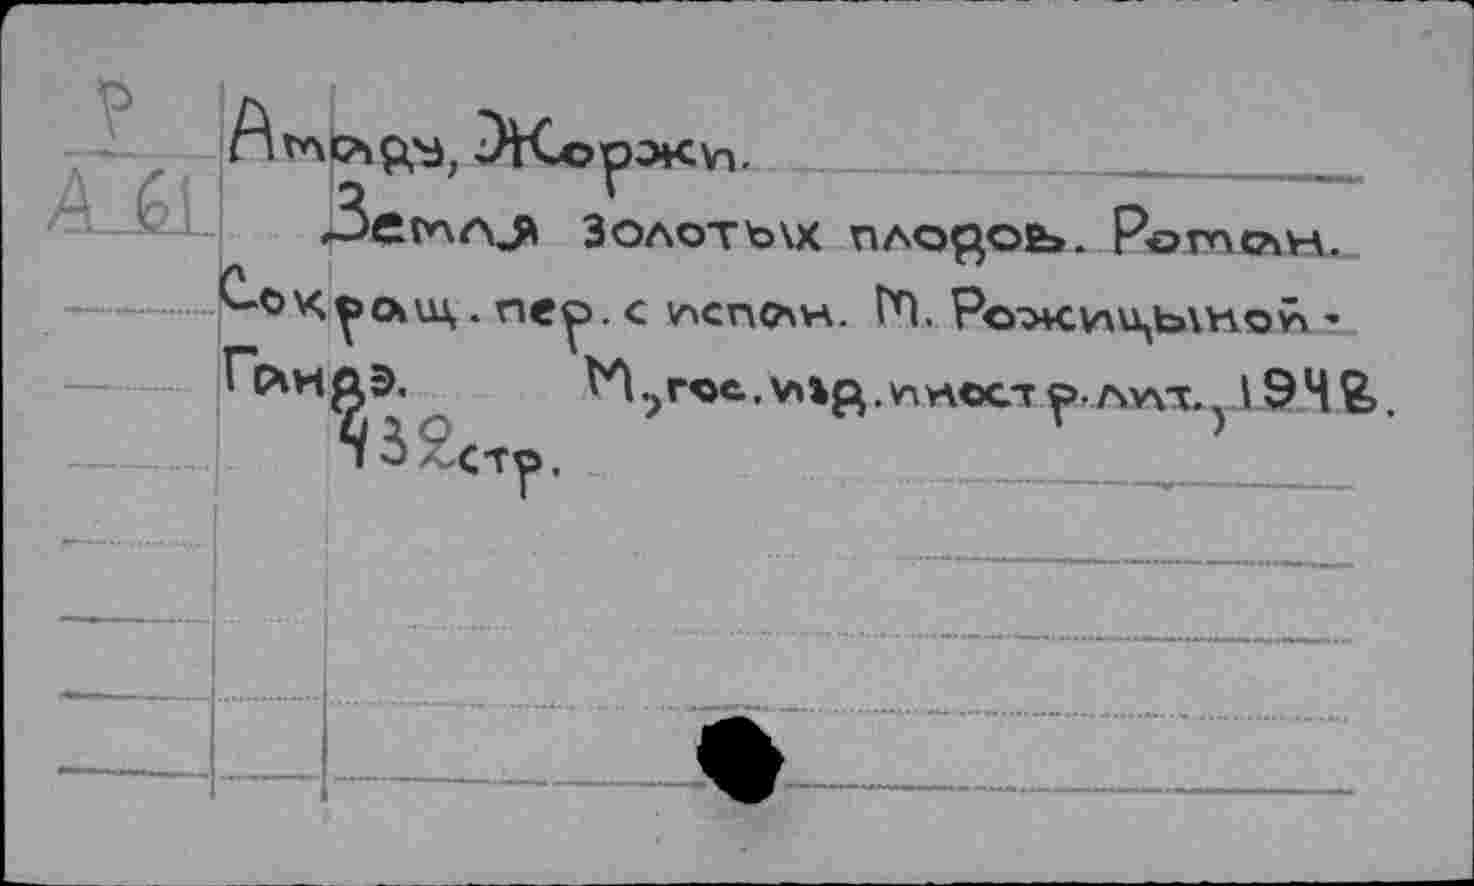 Р
А 61
Амаду, Жоржи.
Земля золотых плодов. Роман.
Сокращ. пер. с испан. М. Рожицыной-
Гандэ. М., гос. изд. иностр. лит., 1948.
432 стр.